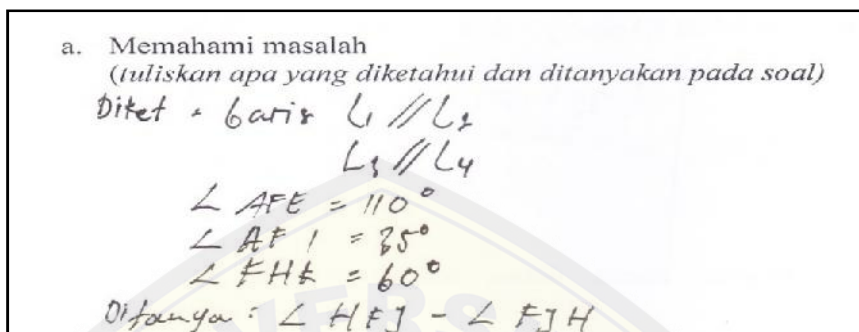 a. Memahami masalah
(tuliskan apa yang diketahui dan ditanyakan pada soal)
Diket : Garis L₁ // L₂
L₃ // L₄
∠ AFE = 110°
∠ AFI = 35°
∠ FHK = 60°
Ditanya : ∠ HFJ - ∠ FJH